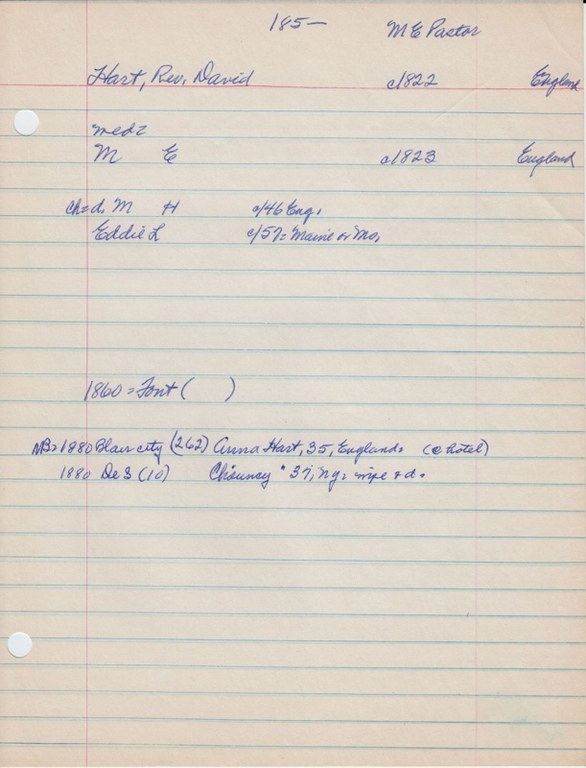 185— M E Pastor
Hart, Rev. David c1822 England
med=
M E c1823 England
ch=d. M H c/46 Eng.
Eddie L c/57= Maine or Mo.
1860 = Font ( )
NB= 1880 Blair city (262) Anna Hart, 35, England= (@ hotel)
1880 De S (10) Chauncy " 37, Ny= wife + d.